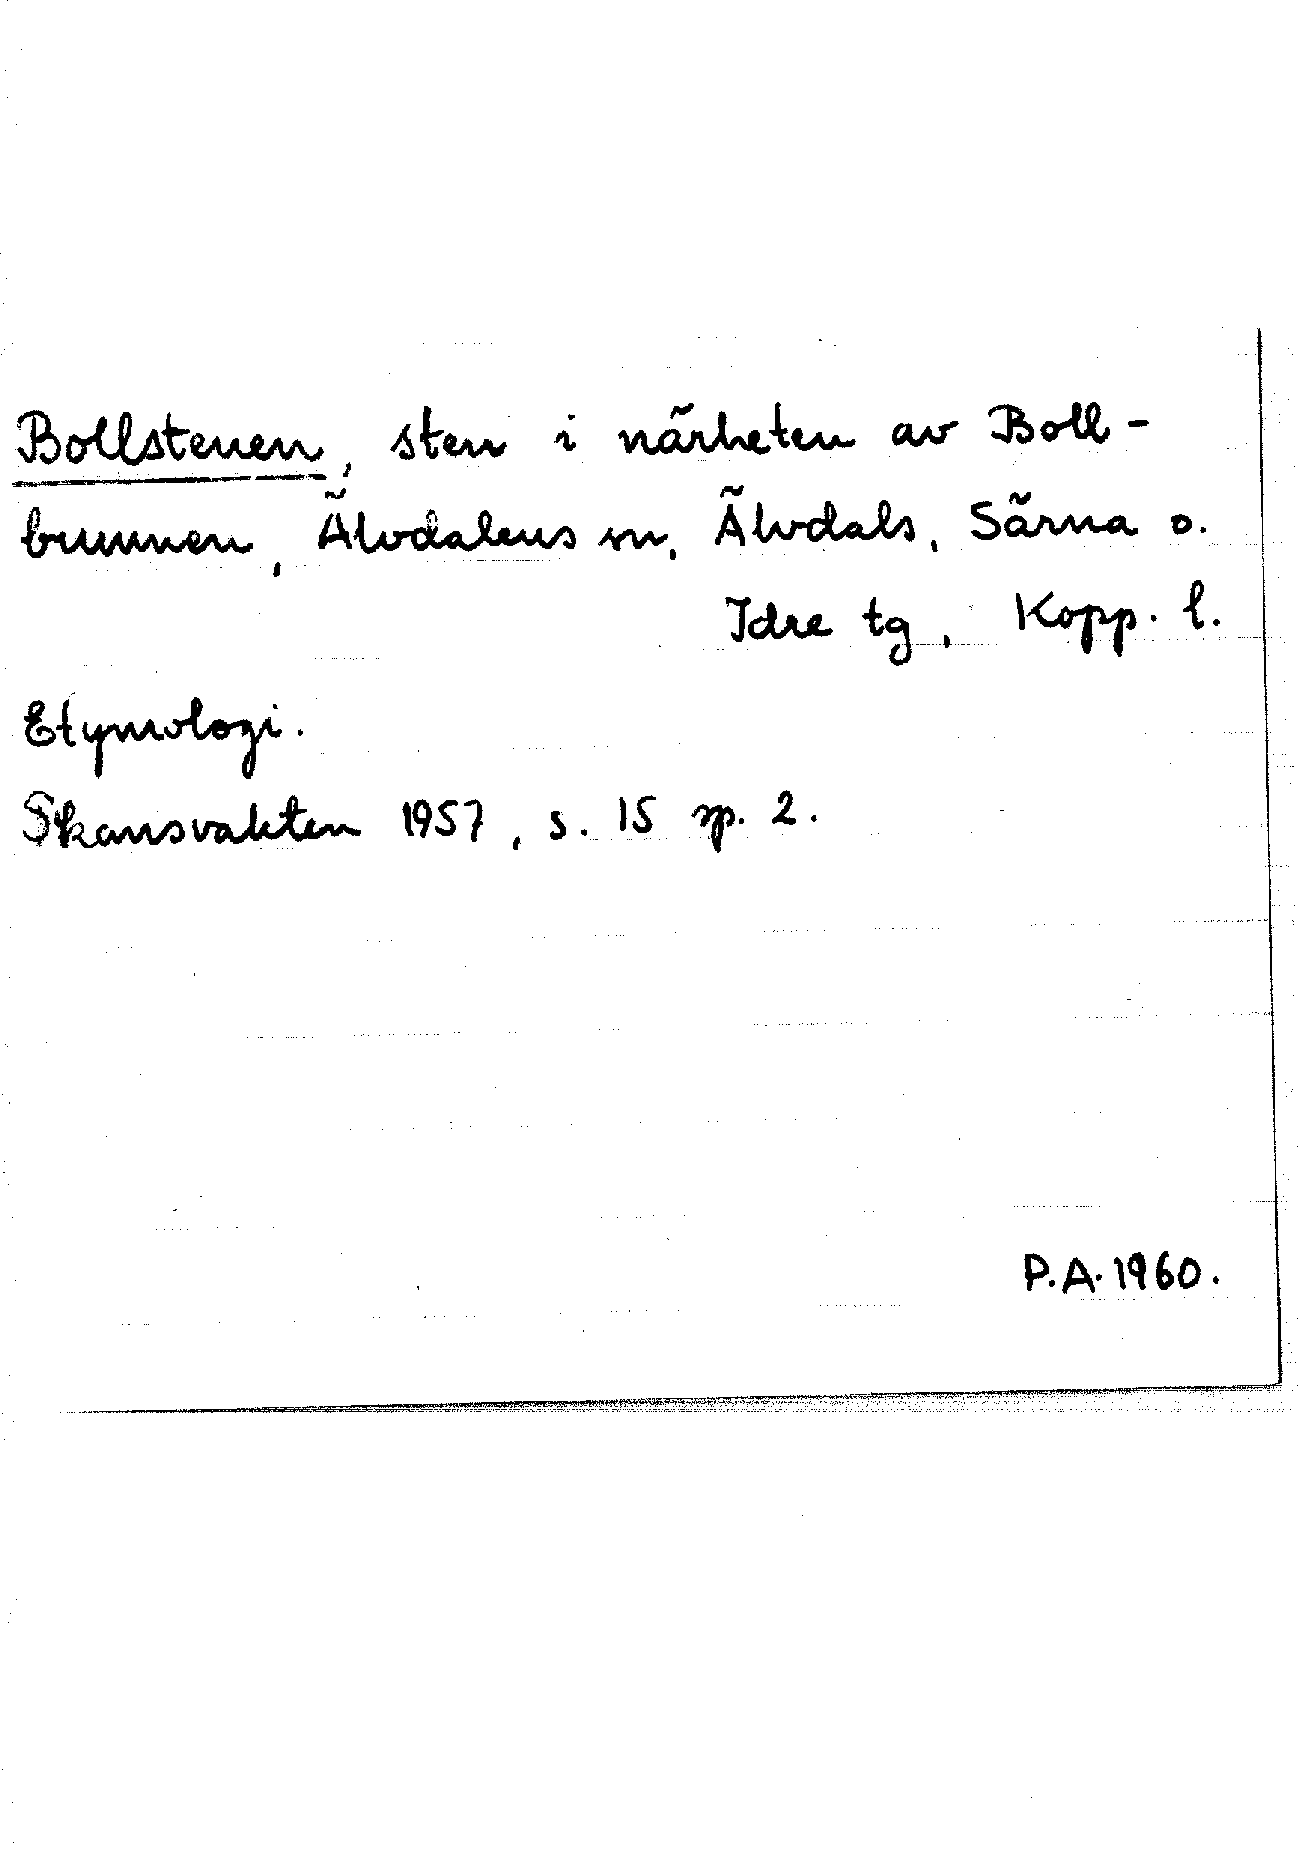 Bollstenen, sten i närheten av Boll-
brunnen, Älvdalens sn, Älvdals, Särna o.
Idre tg, Kopp. l.
Etymologi.
Skansvakten 1957, s. 15 sp. 2.
P.A. 1960.